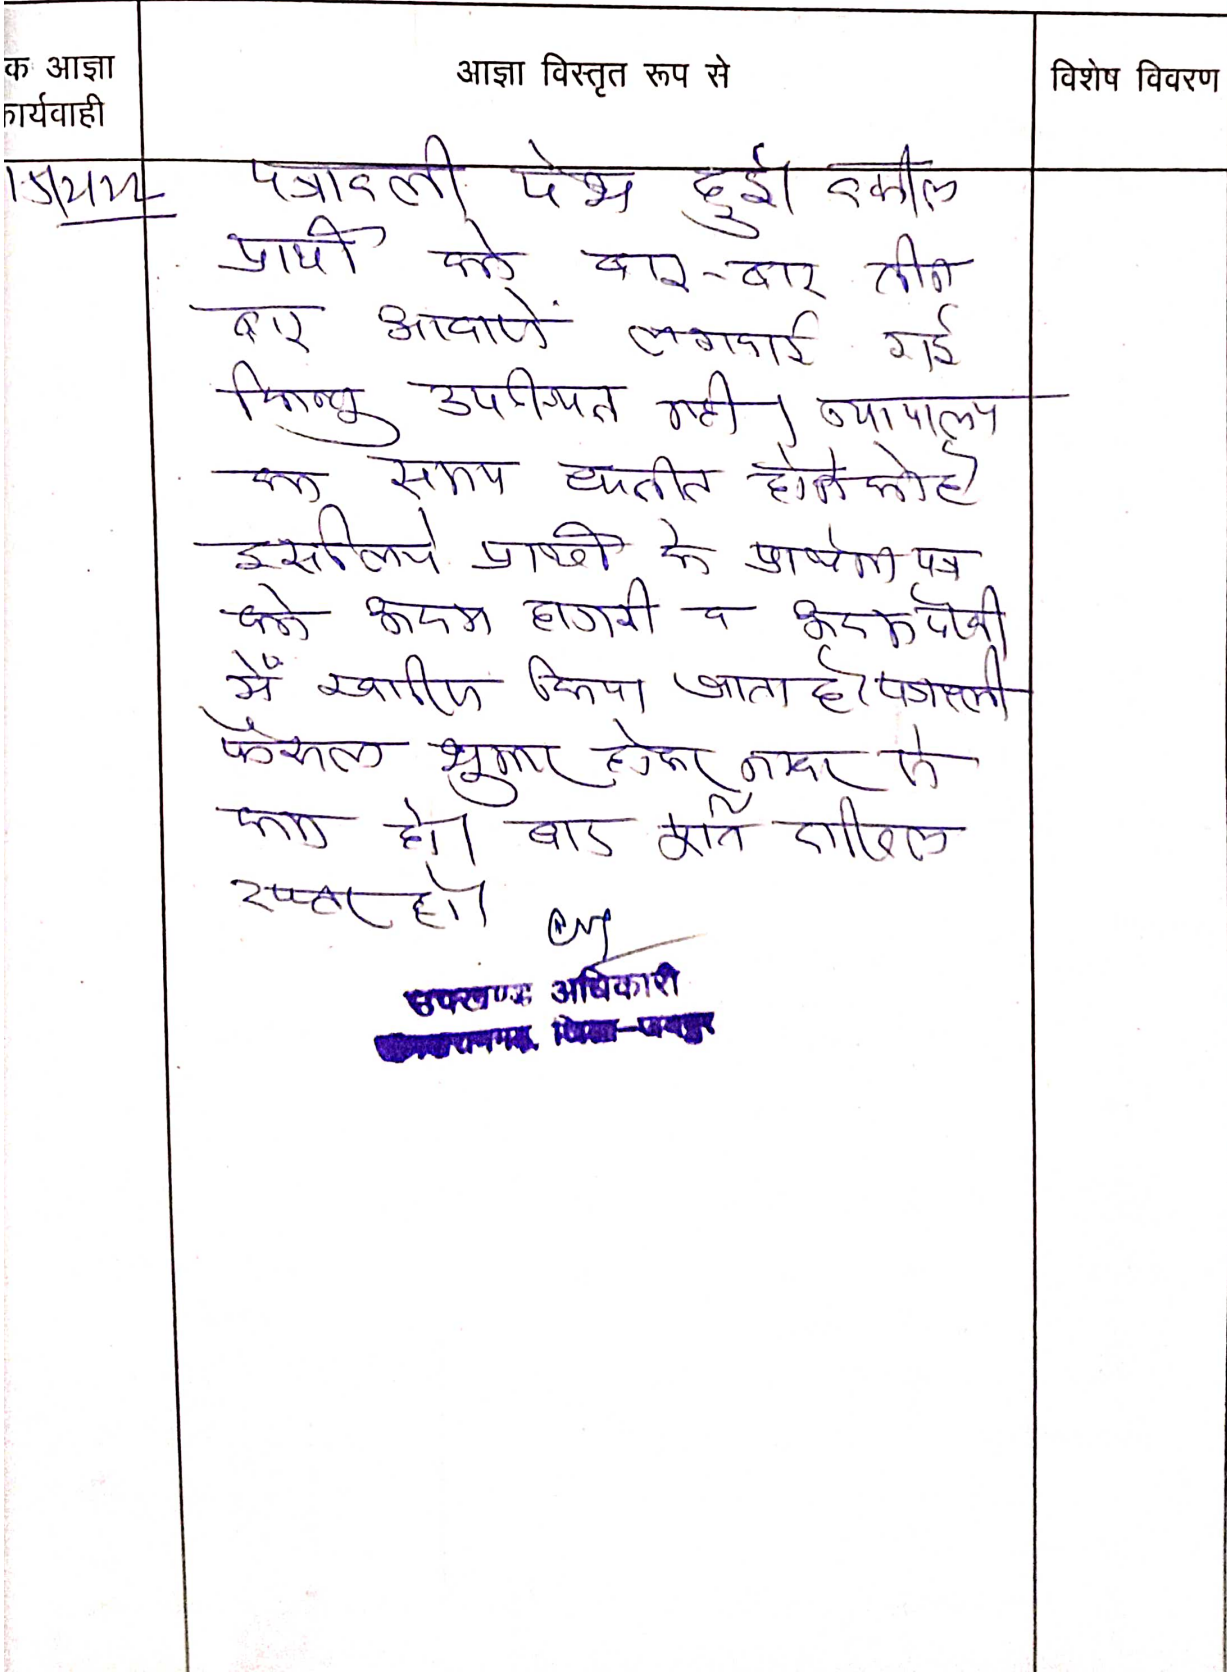 क आज्ञा
कार्यवाही
आज्ञा विस्तृत रूप से
विशेष विवरण
पत्रावली पेश हुई। वकील
प्रार्थी को बार-बार तीन
बार आवाजें लगवाई गई
किन्तु उपस्थित नही। न्यायालय
का समय व्यतीत होने को है
इसलिये प्रार्थी के प्रार्थना पत्र
को अदम हाजरी व अदम पैरवी
में खारिज किया जाता है। पत्रावली
फैसल शुमार होकर नम्बर से
कम हो। बाद पूर्ति दाखिल
दफ्तर हो।
उपखण्ड अधिकारी